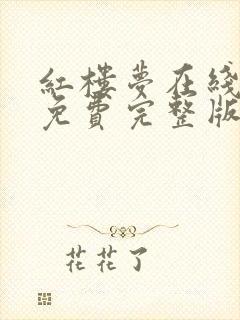 红楼夢在綫
免費完整版
花花了